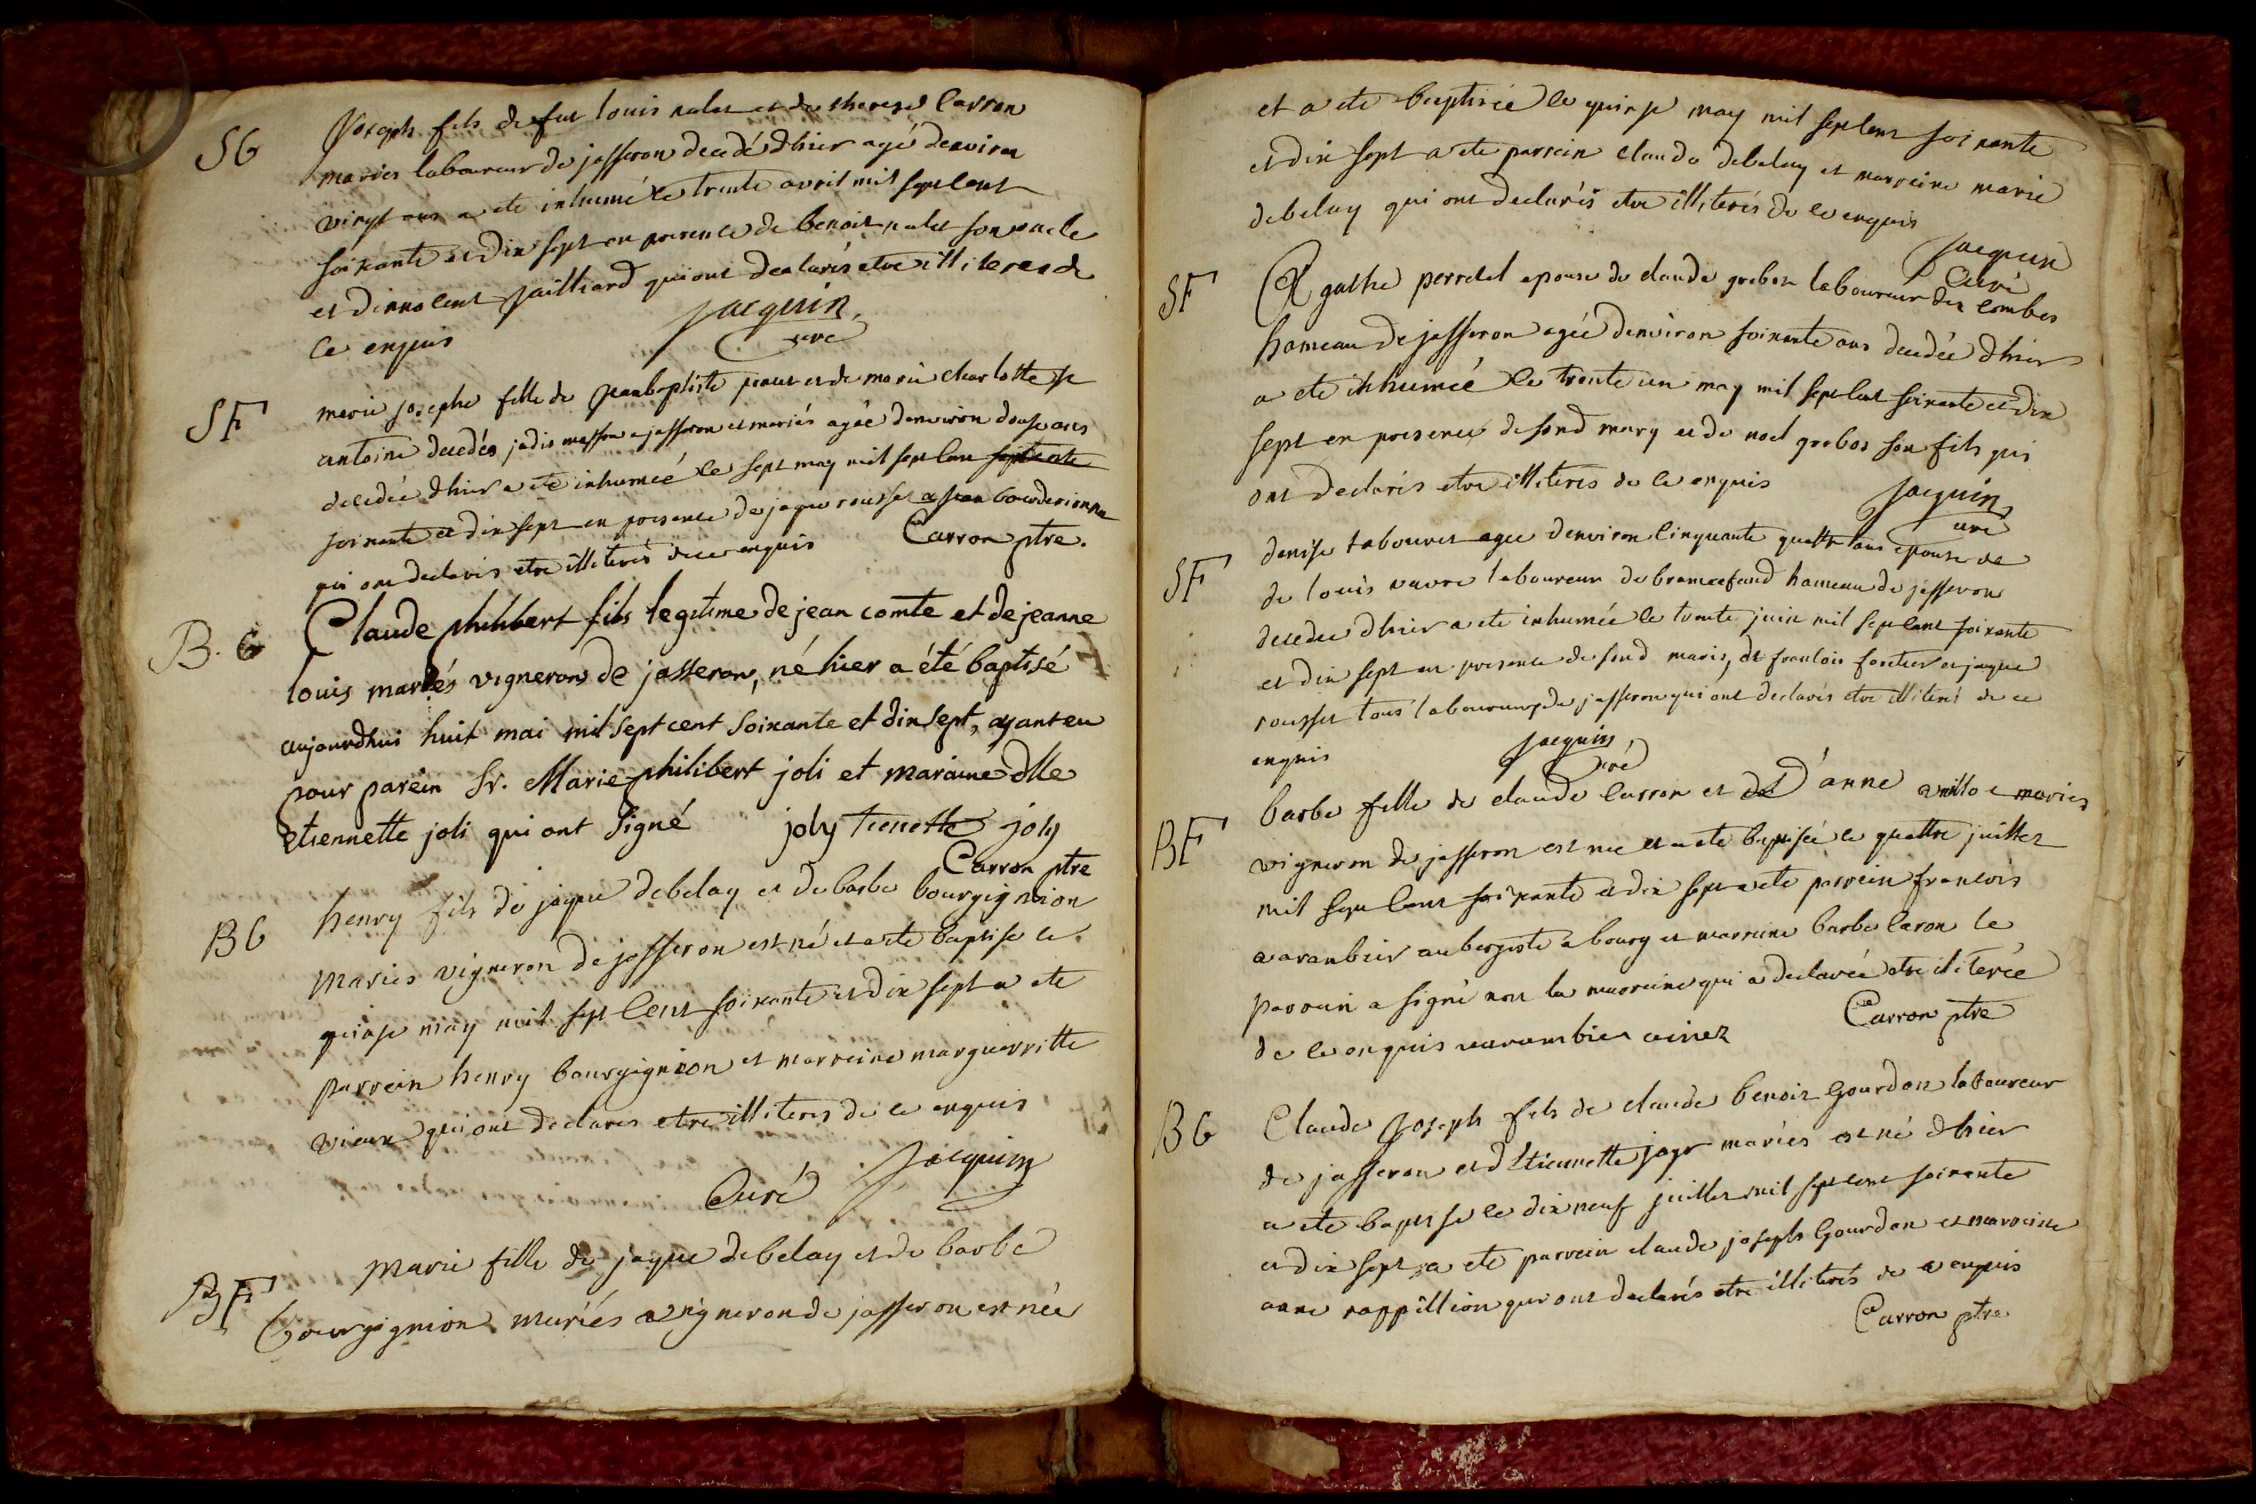 SG
Joseph fils de feu louis nalet et de therese Carron
mariés laboureur de jasseron decedé dhier agé denviron
vingt ans a ete inhumé le trente avril mil sept cent
soixante et dix sept en presence de benoit nalet son oncle
et dinnocent jailliard qui ont declarés etre illiteres de
ce enquis
jacquin
curé
SF
marie josephe fille de jean baptiste et de marie charlotte
antoine decedés jadis masson a jasseron et mariés agée denviron douse ans
decedée dhier a ete inhumée le sept may mil sept cent septente
soixante et dix sept en presence de jaque rousset
qui ont declarés etre illiterés de ce enquis
Carron ptre.
B. G
Claude philibert fils legitime de jean comte et de jeanne
louis mariés vignerons de jasseron, né hier a été baptisé
aujourdhui huit mai mil sept cent soixante et dix sept, ayant eu
pour parein Sr. Marie philibert joli et maraine dlle
etiennette joli qui ont signé joly tienette joly
Carron ptre
BG
henry fils de jaque debelay et de barbe bourgignion
mariés vigneron de jasseron est né et a ete baptise le
quinse may mil sept Cent soixante et dix sept a ete
parrein henry bourgignion et marreine marguerritte
vieux qui ont declares etre illiteres de ce enquis
jacquin
Curé
BF
marie fille de jaque debelay et de barbe
bourgignion mariés vigneron de jasseron est née
et a ete baptisée le quinse may mil sept cent soixante
et dix sept a ete parrein claude debelay et marreine marie
debelay qui ont declarés etre illiterés de ce enquis
jacquin
Curé
SF
Agathe perrelet epouse de claude grobos laboureur des combes
hameau de jasseron agée denviron soixante ans decedée dhier
a ete inhumée le trente un may mil sept cent soixante et dix
sept en presence de sond mary et de noel grobos son fils qui
ont declarés etre illiterés de ce enquis
jacquin
curé
SF
denise tabouret agee denviron Cinquante quatre ans epouse
de louis vavre laboureur de bramefand hameau de jasseron
decedee dhier a ete inhumée le trente juin mil sept cent soixante
et dix sept en presence de sond maris, de francois et jaque
rousset tous laboureurs de jasseron qui ont declarés etre illiteré de ce
enquis
jacquin
curé
BF
barbe fille de claude Carron et de D'anne mariés
vigneron de jasseron est nee et a ete baptisée le quattre juillet
mil sept Cent soixante et dix sept a ete parrein francois
varambier aubergiste a bourg et marreine barbe Caron le
parrein a signé non la marreine qui a declarée etre illiterée
de ce enquis varambier ainez
Carron ptre
BG
Claude Joseph fils de claude benoit Gourdon laboureur
de jasseron et d'Etiennette jayr mariés est né dhier
a ete baptise le dix neuf juillet mil sept cent soixante
et dix sept a ete parrein claude joseph Gourdon et marreine
anne rappillion qui ont declarés etre illiterés de ce enquis
Carron ptre